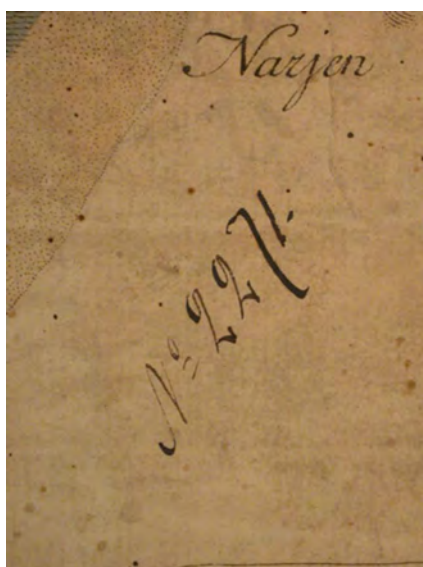 Narjen
Nº 2271.